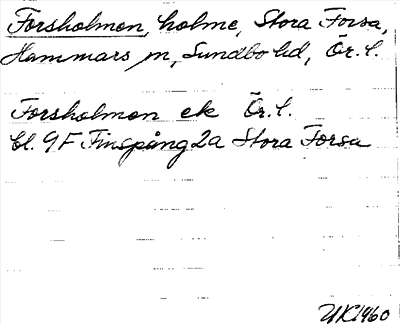 Forsholmen, holme, Stora Forsa,
Hammars sn, Sundbo hd, Ör. l.
Forsholmen ek Ör. l.
bl. 9F Finspång 2a Stora Forsa
UK 1960